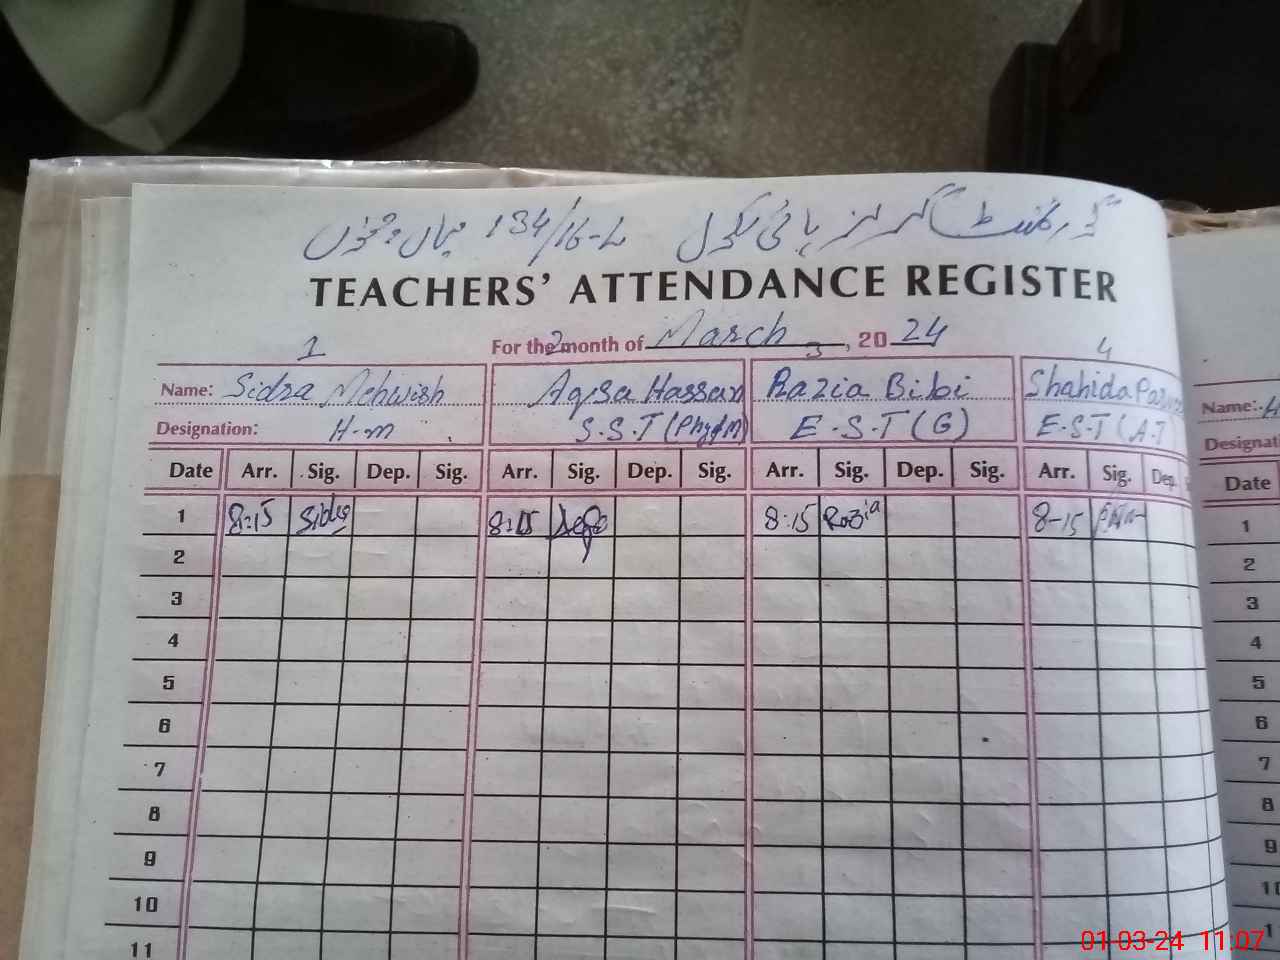 گورنمنٹ گرلز ہائی سکول 134/16-L میاں چنوں
TEACHERS' ATTENDANCE REGISTER
For the month of March, 2024
1 2 3 4
Name: Sidra Mehwish Aqsa Hassan Razia Bibi Shahida
Designation: H.m S.S.T (Phy+M) E.S.T (G) E.S.T (A.T
Date Arr. Sig. Dep. Sig. Arr. Sig. Dep. Sig. Arr. Sig. Dep. Sig. Arr. Sig. Dep.
1 8:15 Sidra 8:15 8:15 Razia 8-15
2
3
4
5
6
7
8
9
10
11
Name:
Designat
Date
1
2
3
4
5
6
7
8
9
10
1
01-03-24 11:07